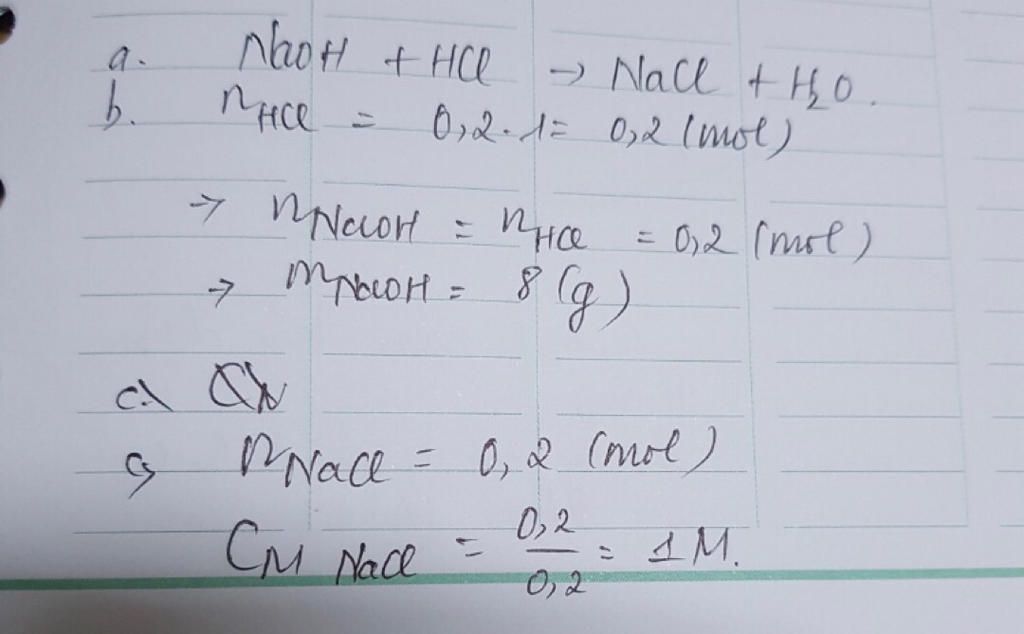 a. NaOH + HCl → NaCl + H₂O.
b. nHCl = 0,2 . 1 = 0,2 (mol)
→ nNaOH = nHCl = 0,2 (mol)
→ mNaOH = 8 (g)
c)
c) nNaCl = 0,2 (mol)
CM NaCl = 0,2/0,2 = 1M.